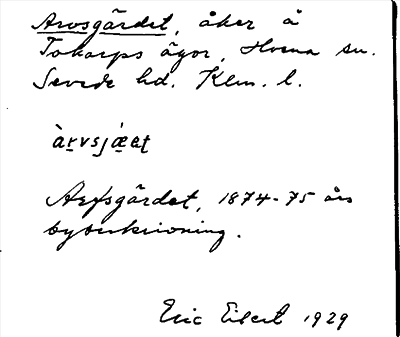 Arvsgärdet, åker å
Tokarps ägor, Hvena sn.
Sevede hd. Klm. l.
àrvsjáet
Arfsgärdet, 1874-75 års
bybeskrivning.
Eric Elert 1929